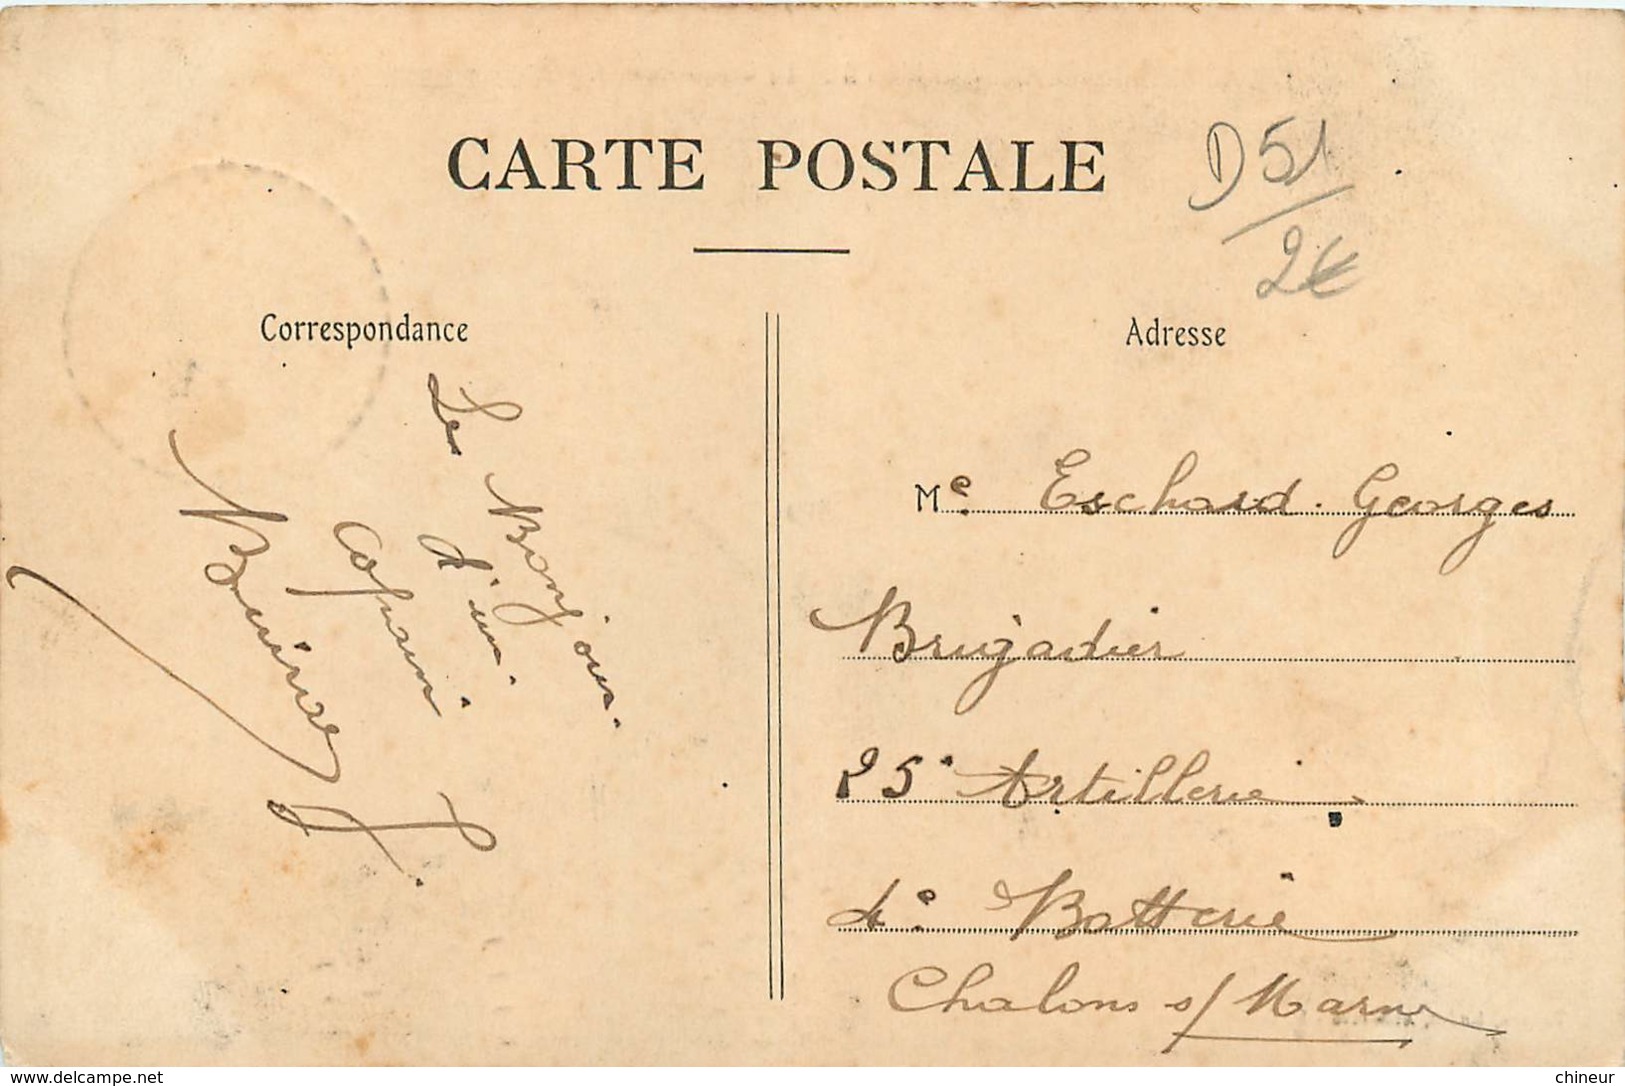 CARTE POSTALE
D51
2€
Correspondance
Les Bonjours
d'un
Copain
Adresse
Mr. Eschard. Georges
Brigadier
25e Artillerie
4e Batterie
Chalons s/ Marne
www.delcampe.net
chineur